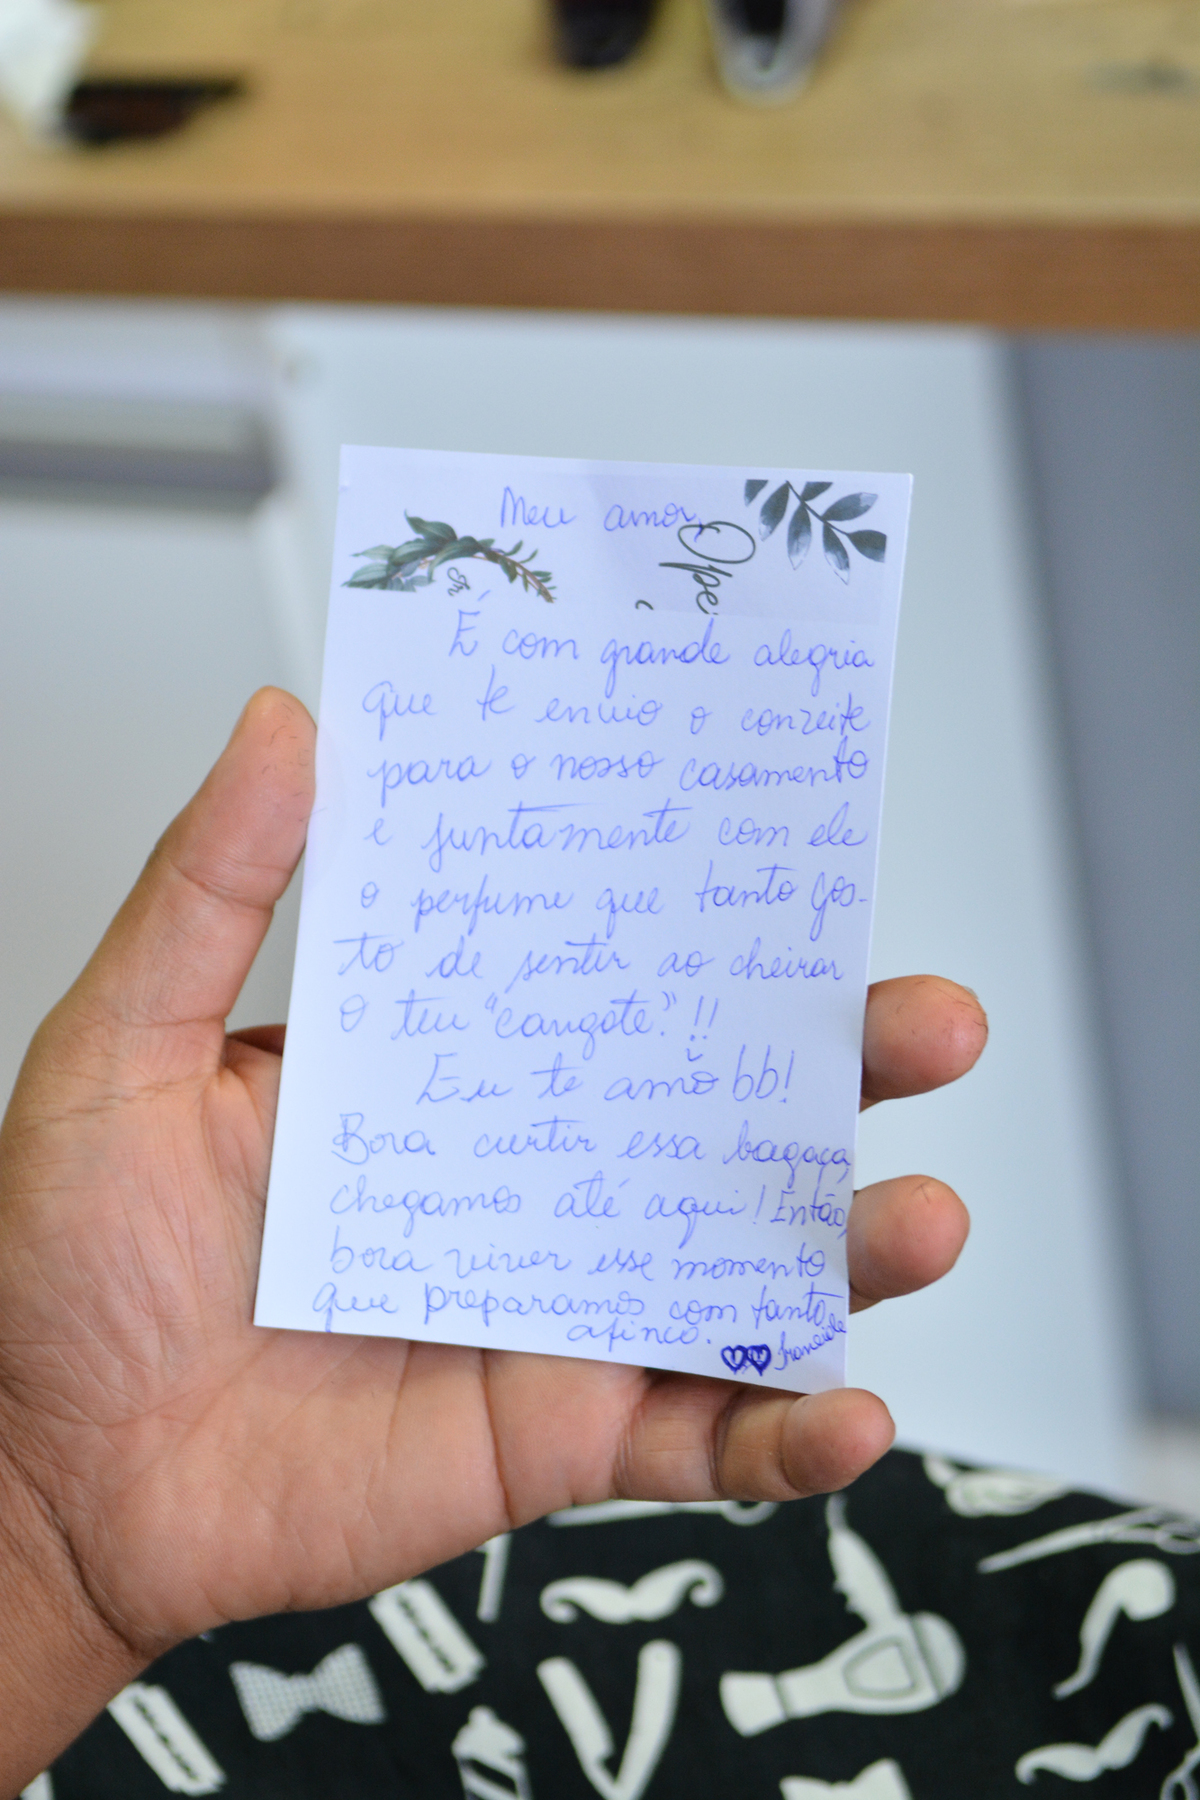 Meu amor,
Ope
É com grande alegria
que te envio o convite
para o nosso casamento
e juntamente com ele
o perfume que tanto gos-
to de sentir ao cheirar
o teu "cangote." !!
Eu te amo bb!
Bora curtir essa bagaça,
chegamos até aqui! Então,
bora viver esse momento
que preparamos com tanto
afinco.